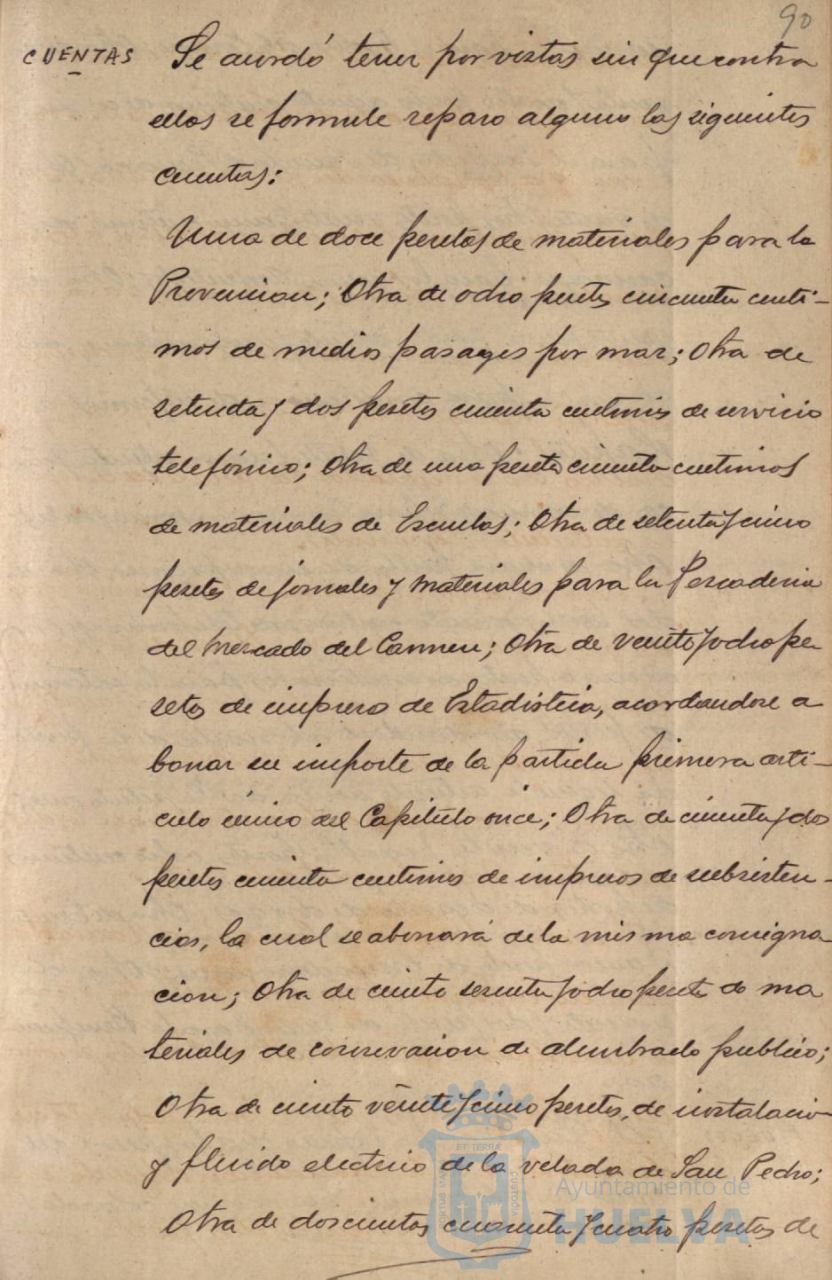 90
CUENTAS
Se acordó tener por vistas sin que contra
ellas se formule reparo alguno las siguientes
cuentas:
Una de doce pesetas de materiales para la
Prevencion; Otra de ocho pesetas cincuenta centi-
mos de medios pasages por mar; Otra de
setenta y dos pesetas cincuenta centimos de servicio
telefónico; Otra de una peseta cincuenta centimos
de materiales de Escuelas; Otra de setenta y cinco
pesetas de jornales y materiales para la Pescaderia
del Mercado del Carmen; Otra de veinte y ocho pe
setas de impresos de Estadistica, acordandose a
bonar su importe de la partida primera arti-
culo único del Capítulo once; Otra de cincuenta y dos
pesetas cincuenta centimos de impresos de subsisten-
cias, la cual se abonará de la misma consigna
cion; Otra de ciento sesenta y ocho pesetas de ma
teriales de conservacion de alumbrado publico;
Otra de ciento veinte y cinco pesetas, de instalacion
y fluido electrico de la velada de San Pedro;
Otra de doscientas cuarenta y cuatro pesetas de
Ayuntamiento de
HUELVA